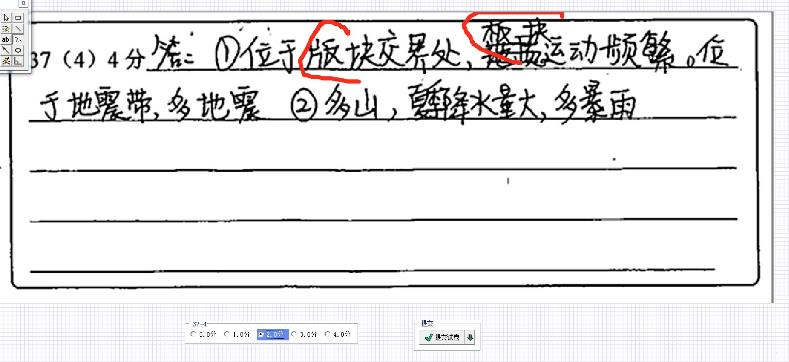 37（4）4分 答：①位于版块交界处，板块运动频繁。位
于地震带，多地震 ②多山，夏季降水量大，多暴雨
37-4
0.0分 1.0分 2.0分 3.0分 4.0分
提交
提交试卷